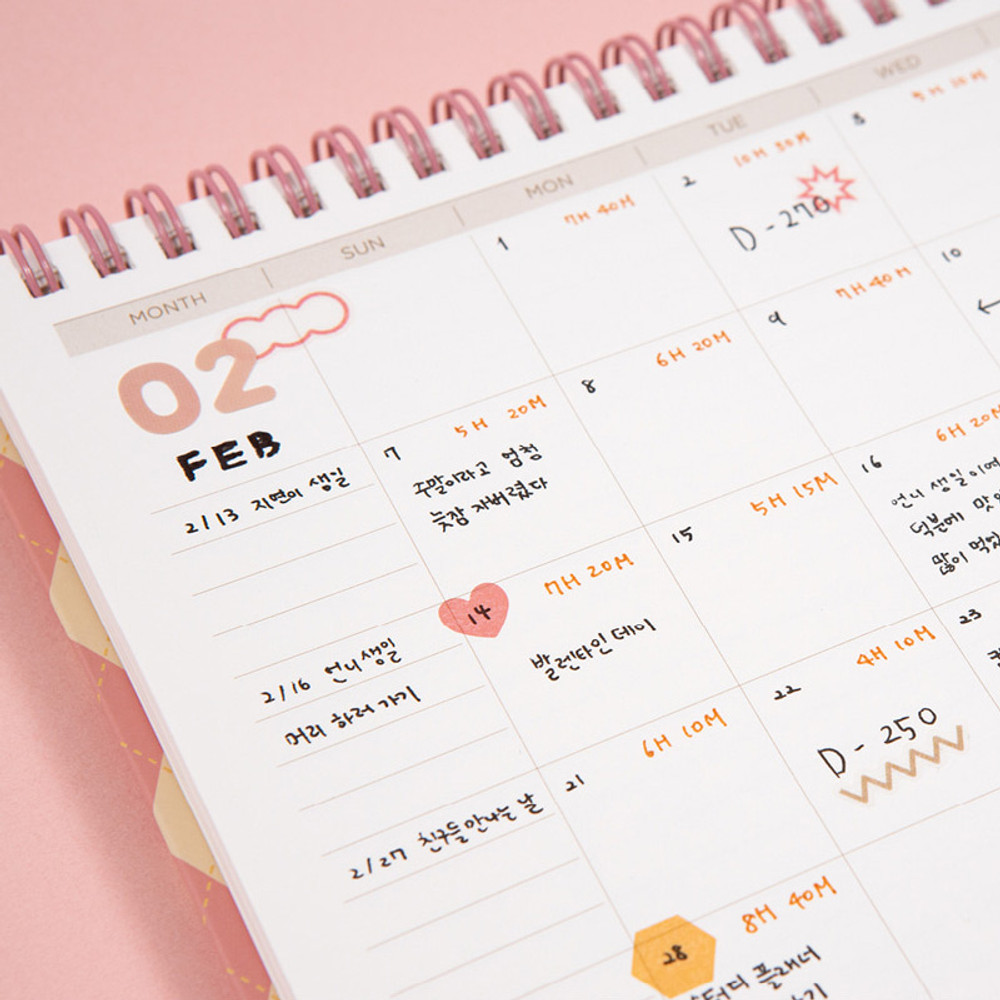 MONTH SUN MON TUE WED
02
FEB
2/13 지연이 생일
2/16 언니생일
머리 하러 가기
2/27 친구들 만나는 날
1 7H 40M
2 10H 30M
D-270
3
7 5H 20M
주말이라고 엄청
늦잠 자버렸다
8 6H 20M
9 7H 40M
10
14 7H 20M
발렌타인 데이
15 5H 15M
16 6H 20M
언니 생일이어
덕분에 맛있
많이 먹었
21 6H 10M
22 4H 10M
D-250
23
28 8H 40M
플래너